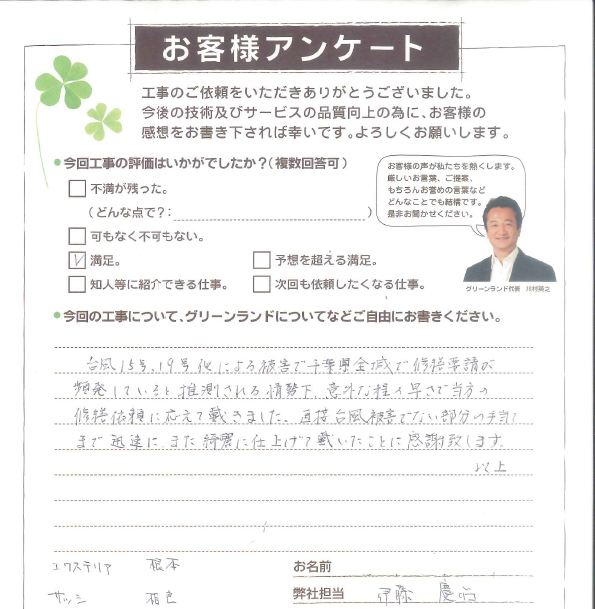 お客様アンケート
工事のご依頼をいただきありがとうございました。
今後の技術及びサービスの品質向上の為に、お客様の
感想をお書き下されば幸いです。よろしくお願いします。
今回工事の評価はいかがでしたか？(複数回答可)
お客様の声が私たちを熱くします。
厳しいお言葉、ご提案、
もちろんお誉めの言葉など
どんなことでも結構です。
是非お聞かせください。
不満が残った。
(どんな点で？: )
可もなく不可もない。
満足。
予想を超える満足。
知人等に紹介できる仕事。
次回も依頼したくなる仕事。
グリーンランド代表 川村英之
今回の工事について、グリーンランドについてなどご自由にお書きください。
台風15号、19号他による被害で千葉県全域で修繕要請が
頻発していると推測される情勢下、意外な程の早さで当方の
修繕依頼に応えて戴きました。直接台風被害でない部分の手当て
まで迅速に、また綺麗に仕上げて戴いたことに感謝致します。
以上
エクステリア 根本
サッシ
お名前
弊社担当 伊藤